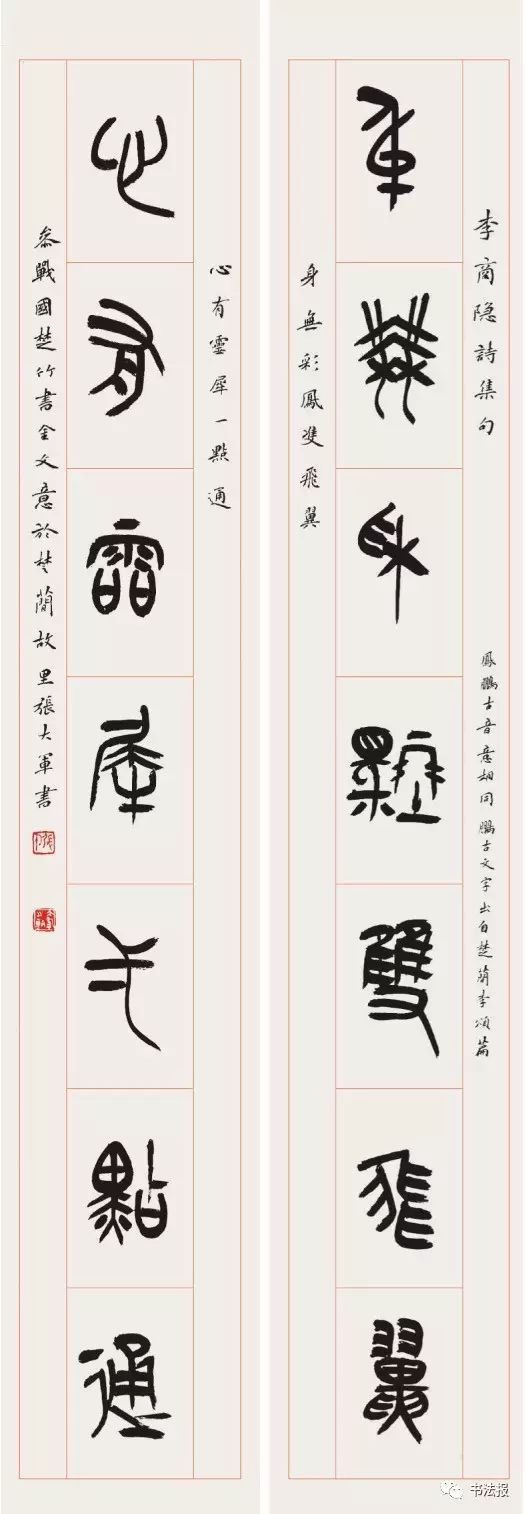 李商隐詩集句
鳳鵬古音意相同 鵬古文字出自楚簡李頌篇
身無彩鳳雙飛翼
身無彩鳳雙飛翼
心有靈犀一點通
心有靈犀一點通
參戰國楚竹書金文意於楚簡故里張大軍書
书法报